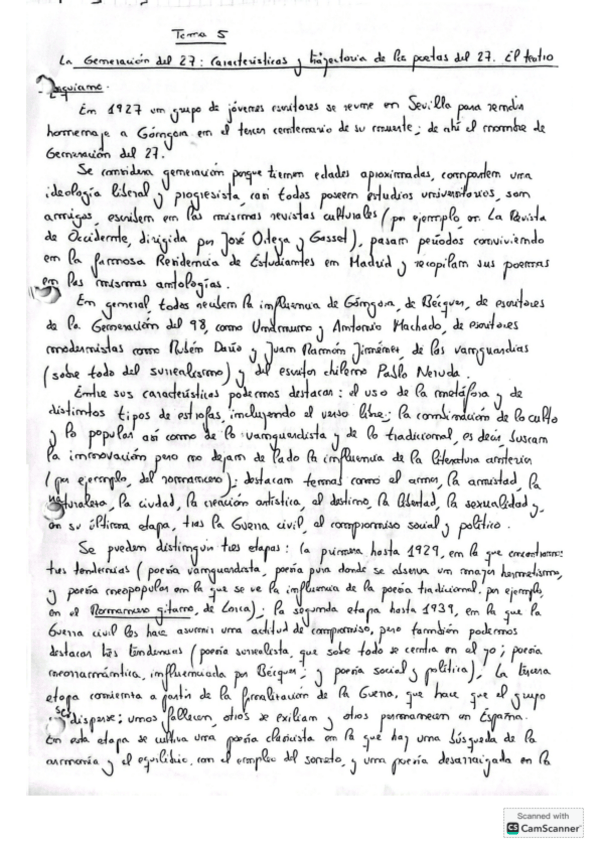 Tema 5
La Generación del 27: Características y trayectoria de los poetas del 27. El teatro
Esquema.
En 1927 un grupo de jóvenes escritores se reune en Sevilla para rendir
homenaje a Góngora en el tercer centenario de su muerte; de ahí el nombre de
Generación del 27.
Se considera generación porque tienen edades aproximadas, comparten una
ideología liberal y progresista, casi todos poseen estudios universitarios, son
amigos, escriben en las mismas revistas culturales (por ejemplo, en La Revista
de Occidente, dirigida por José Ortega y Gasset), pasan períodos conviviendo
en la famosa Residencia de Estudiantes en Madrid y recopilan sus poemas
en las mismas antologías.
En general, todos reciben la influencia de Góngora, de Bécquer, de escritores
de la Generación del 98, como Unamuno y Antonio Machado, de escritores
modernistas como Rubén Darío y Juan Ramón Jiménez, de las vanguardias
(sobre todo del surrealismo) y del escritor chileno Pablo Neruda.
Entre sus características podemos destacar: el uso de la metáfora y de
distintos tipos de estrofas, incluyendo el verso libre; la combinación de lo culto
y lo popular así como de lo vanguardista y de lo tradicional, es decir, buscan
la innovación pero no dejan de lado la influencia de la literatura anterior
(por ejemplo, del romancero); destacan temas como el amor, la amistad, la
naturaleza, la ciudad, la creación artística, el destino, la libertad, la sexualidad y,
en su última etapa, tras la Guerra civil, el compromiso social y político.
Se pueden distinguir tres etapas: la primera hasta 1929, en la que encontramos
tres tendencias (poesía vanguardista, poesía pura donde se observa un mayor hermetismo,
y poesía neopopular en la que se ve la influencia de la poesía tradicional, por ejemplo,
en el Romancero gitano, de Lorca); la segunda etapa hasta 1939, en la que la
Guerra civil les hace asumir una actitud de compromiso, pero también podemos
destacar tres tendencias (poesía surrealista, que sobre todo se centra en el yo; poesía
neorromántica, influenciada por Bécquer; y poesía social y política). La tercera
etapa comienza a partir de la finalización de la Guerra, que hace que el grupo
se disperse; unos fallecen, otros se exilian y otros permanecen en España.
En esta etapa se cultiva una poesía clasicista en la que hay una búsqueda de la
armonía y el equilibrio, con el empleo del soneto, y una poesía desarraigada en la
Scanned with
CS CamScanner